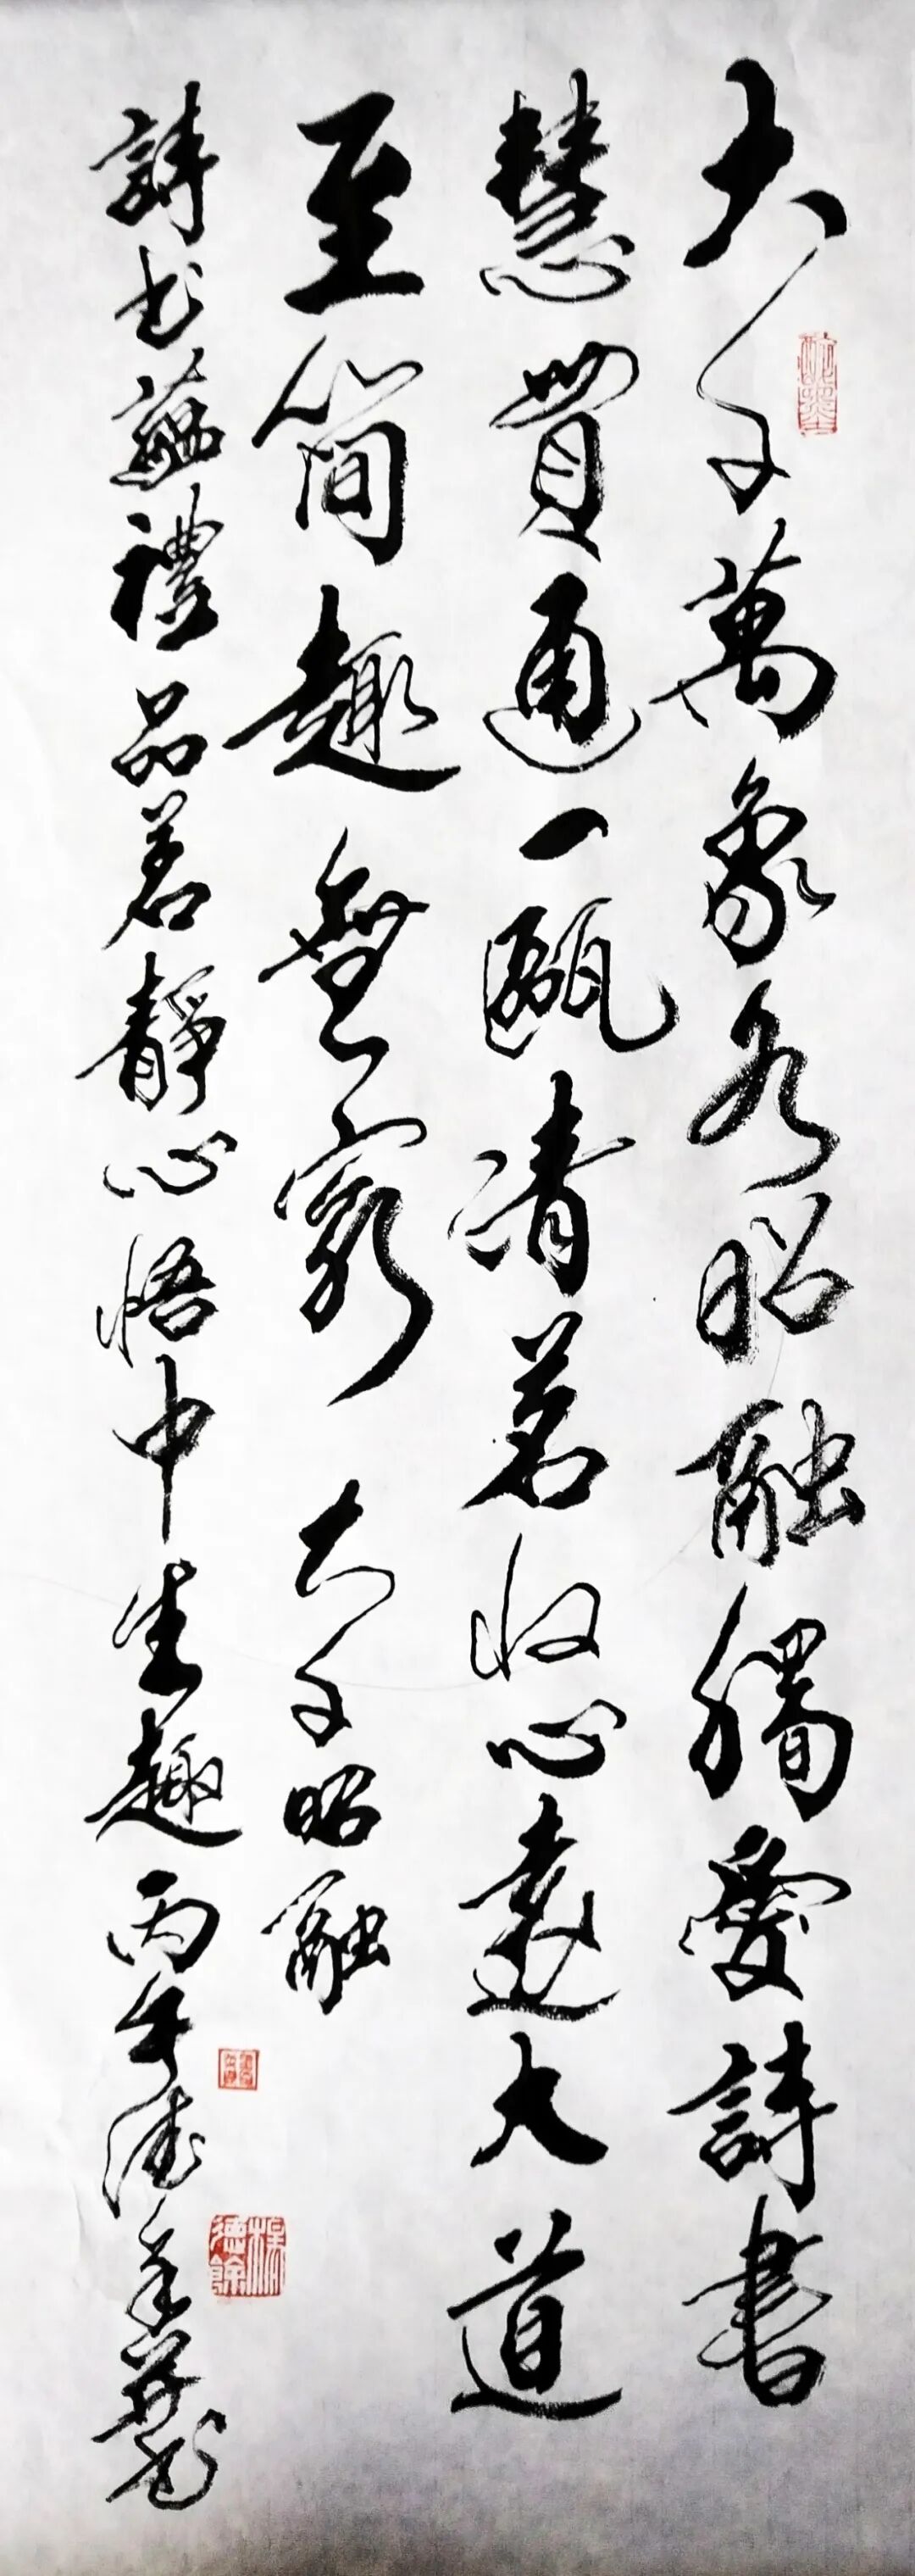 大千萬象各昭融獨愛詩書
慧貫通一甌清茗收心遠大道
至簡趣無窮 大千昭融
詩書蘊禮品茗靜心悟中生趣丙午德餘并書